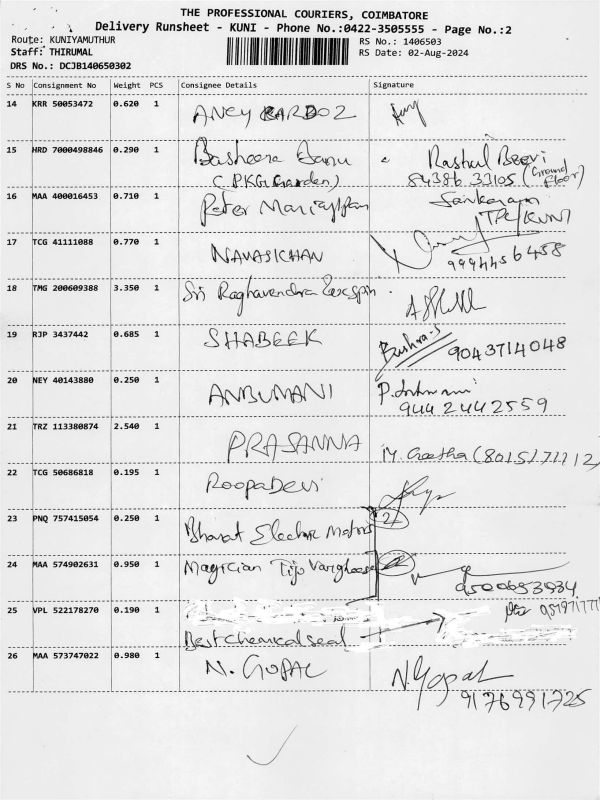 THE PROFESSIONAL COURIERS, COIMBATORE
Delivery Runsheet - KUNI - Phone No.:0422-3505555 - Page No.:2
Route: KUNIYAMUTHUR
RS No.: 1406503
Staff: THIRUMAL
RS Date: 02-Aug-2024
DRS No.: DCJB140650302
S No Consignment No Weight PCS Consignee Details Signature
14 KRR 50053472 0.620 1 ANCY KARDOZ
15 HRD 7000498846 0.290 1 Basheera Banu Rashul Beevi
(PKG Garden) 84386 33105 (Ground Floor)
16 MAA 400016453 0.710 1 Peter Mariappan Sankaram
TPC/KUNI
17 TCG 41111088 0.770 1 NAVASKHAN
9994456458
18 TMG 200609388 3.350 1 Sri Raghavendra
19 RJP 3437442 0.685 1 SHABEEK Bushra.S 9043714048
20 NEY 40143880 0.250 1 ANBUMANI
9442442559
21 TRZ 113380874 2.540 1 PRASANNA M. Geetha (8015171112)
22 TCG 50686818 0.195 1 Roopa Devi
23 PNQ 757415054 0.250 1 Bharat Electric Motors 2
24 MAA 574902631 0.950 1 Magician Tijo Varghese
9500653934
25 VPL 522178270 0.190 1
Best chemical seal
26 MAA 573747022 0.980 1 N. GOPAL N. Gopal
9176991725